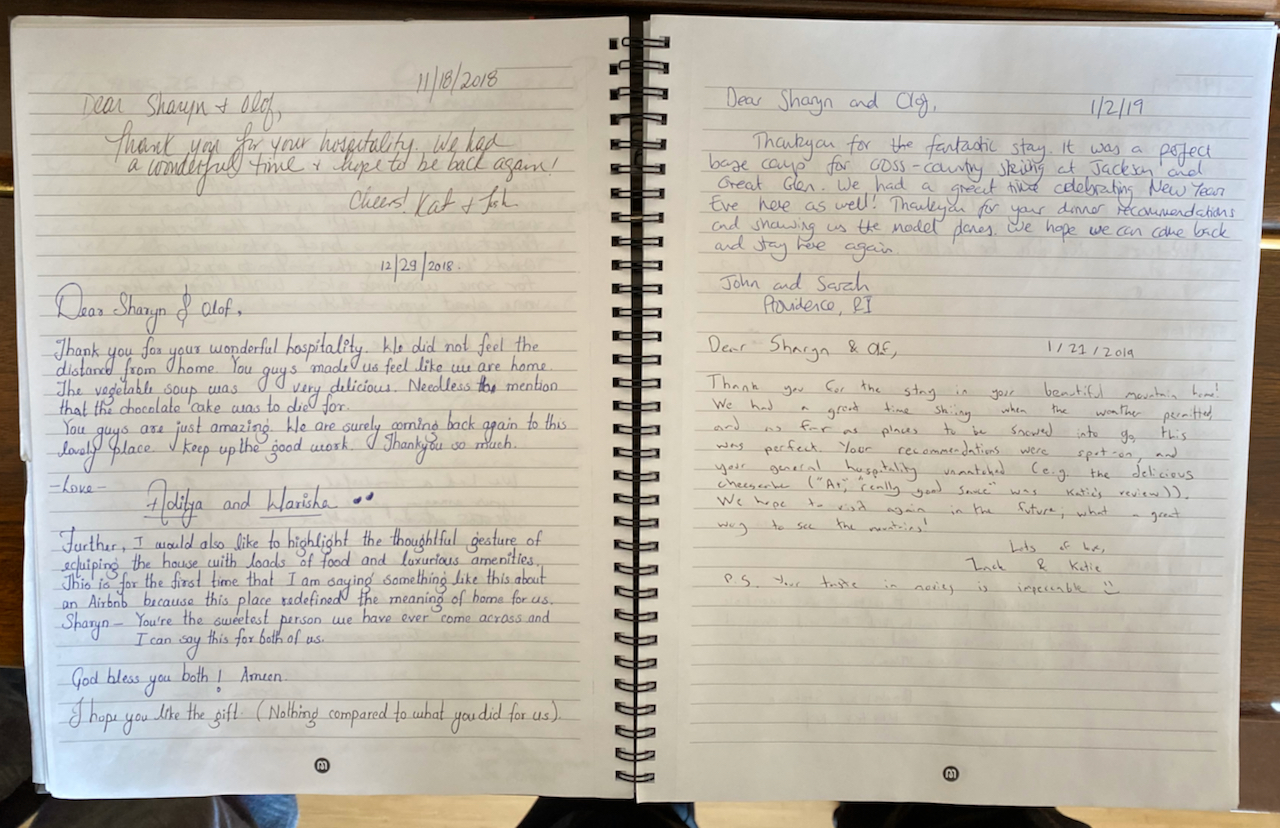 11/18/2018
Dear Sharyn + Olof,
Thank you for your hospitality. We had
a wonderful time + hope to be back again!
Cheers! Kat + Josh
12/29/2018.
Dear Sharyn & Olof,
Thank you for your wonderful hospitality. We did not feel the
distance from home. You guys made us feel like we are home.
The vegetable soup was very delicious. Needless to mention
that the chocolate cake was to die for.
You guys are just amazing. We are surely coming back again to this
lovely place. Keep up the good work. Thankyou so much.
-Love-
Aditya and Warisha
Further, I would also like to highlight the thoughtful gesture of
equiping the house with loads of food and luxurious amenities.
This is for the first time that I am saying something like this about
an Airbnb because this place redefined the meaning of home for us.
Sharyn – You're the sweetest person we have ever come across and
I can say this for both of us.
God bless you both! Ameen.
I hope you like the gift (Nothing compared to what you did for us).
m
Dear Sharyn and Olof, 1/2/19
Thankyou for the fantastic stay. It was a perfect
base camp for cross-country skiing at Jackson and
Great Glen. We had a great time celebrating New Year
Eve here as well! Thankyou for your dinner recommendations
and showing us the model planes. We hope we can come back
and stay here again.
John and Sarah
Providence, RI
Dear Sharyn & Olof, 1/21/2019
Thank you for the stay in your beautiful mountain home!
We had a great time skiing when the weather permitted,
and as far as places to be snowed into go, this
was perfect. Your recommendations were spot-on, and
your general hospitality unmatched (e.g. the delicious
cheesecake ("A+, really good sauce" was Katie's review)).
We hope to visit again in the future, what a great
way to see the mountains!
Lots of love,
Zach & Katie
P.S. Your taste in movies is impeccable :)
m